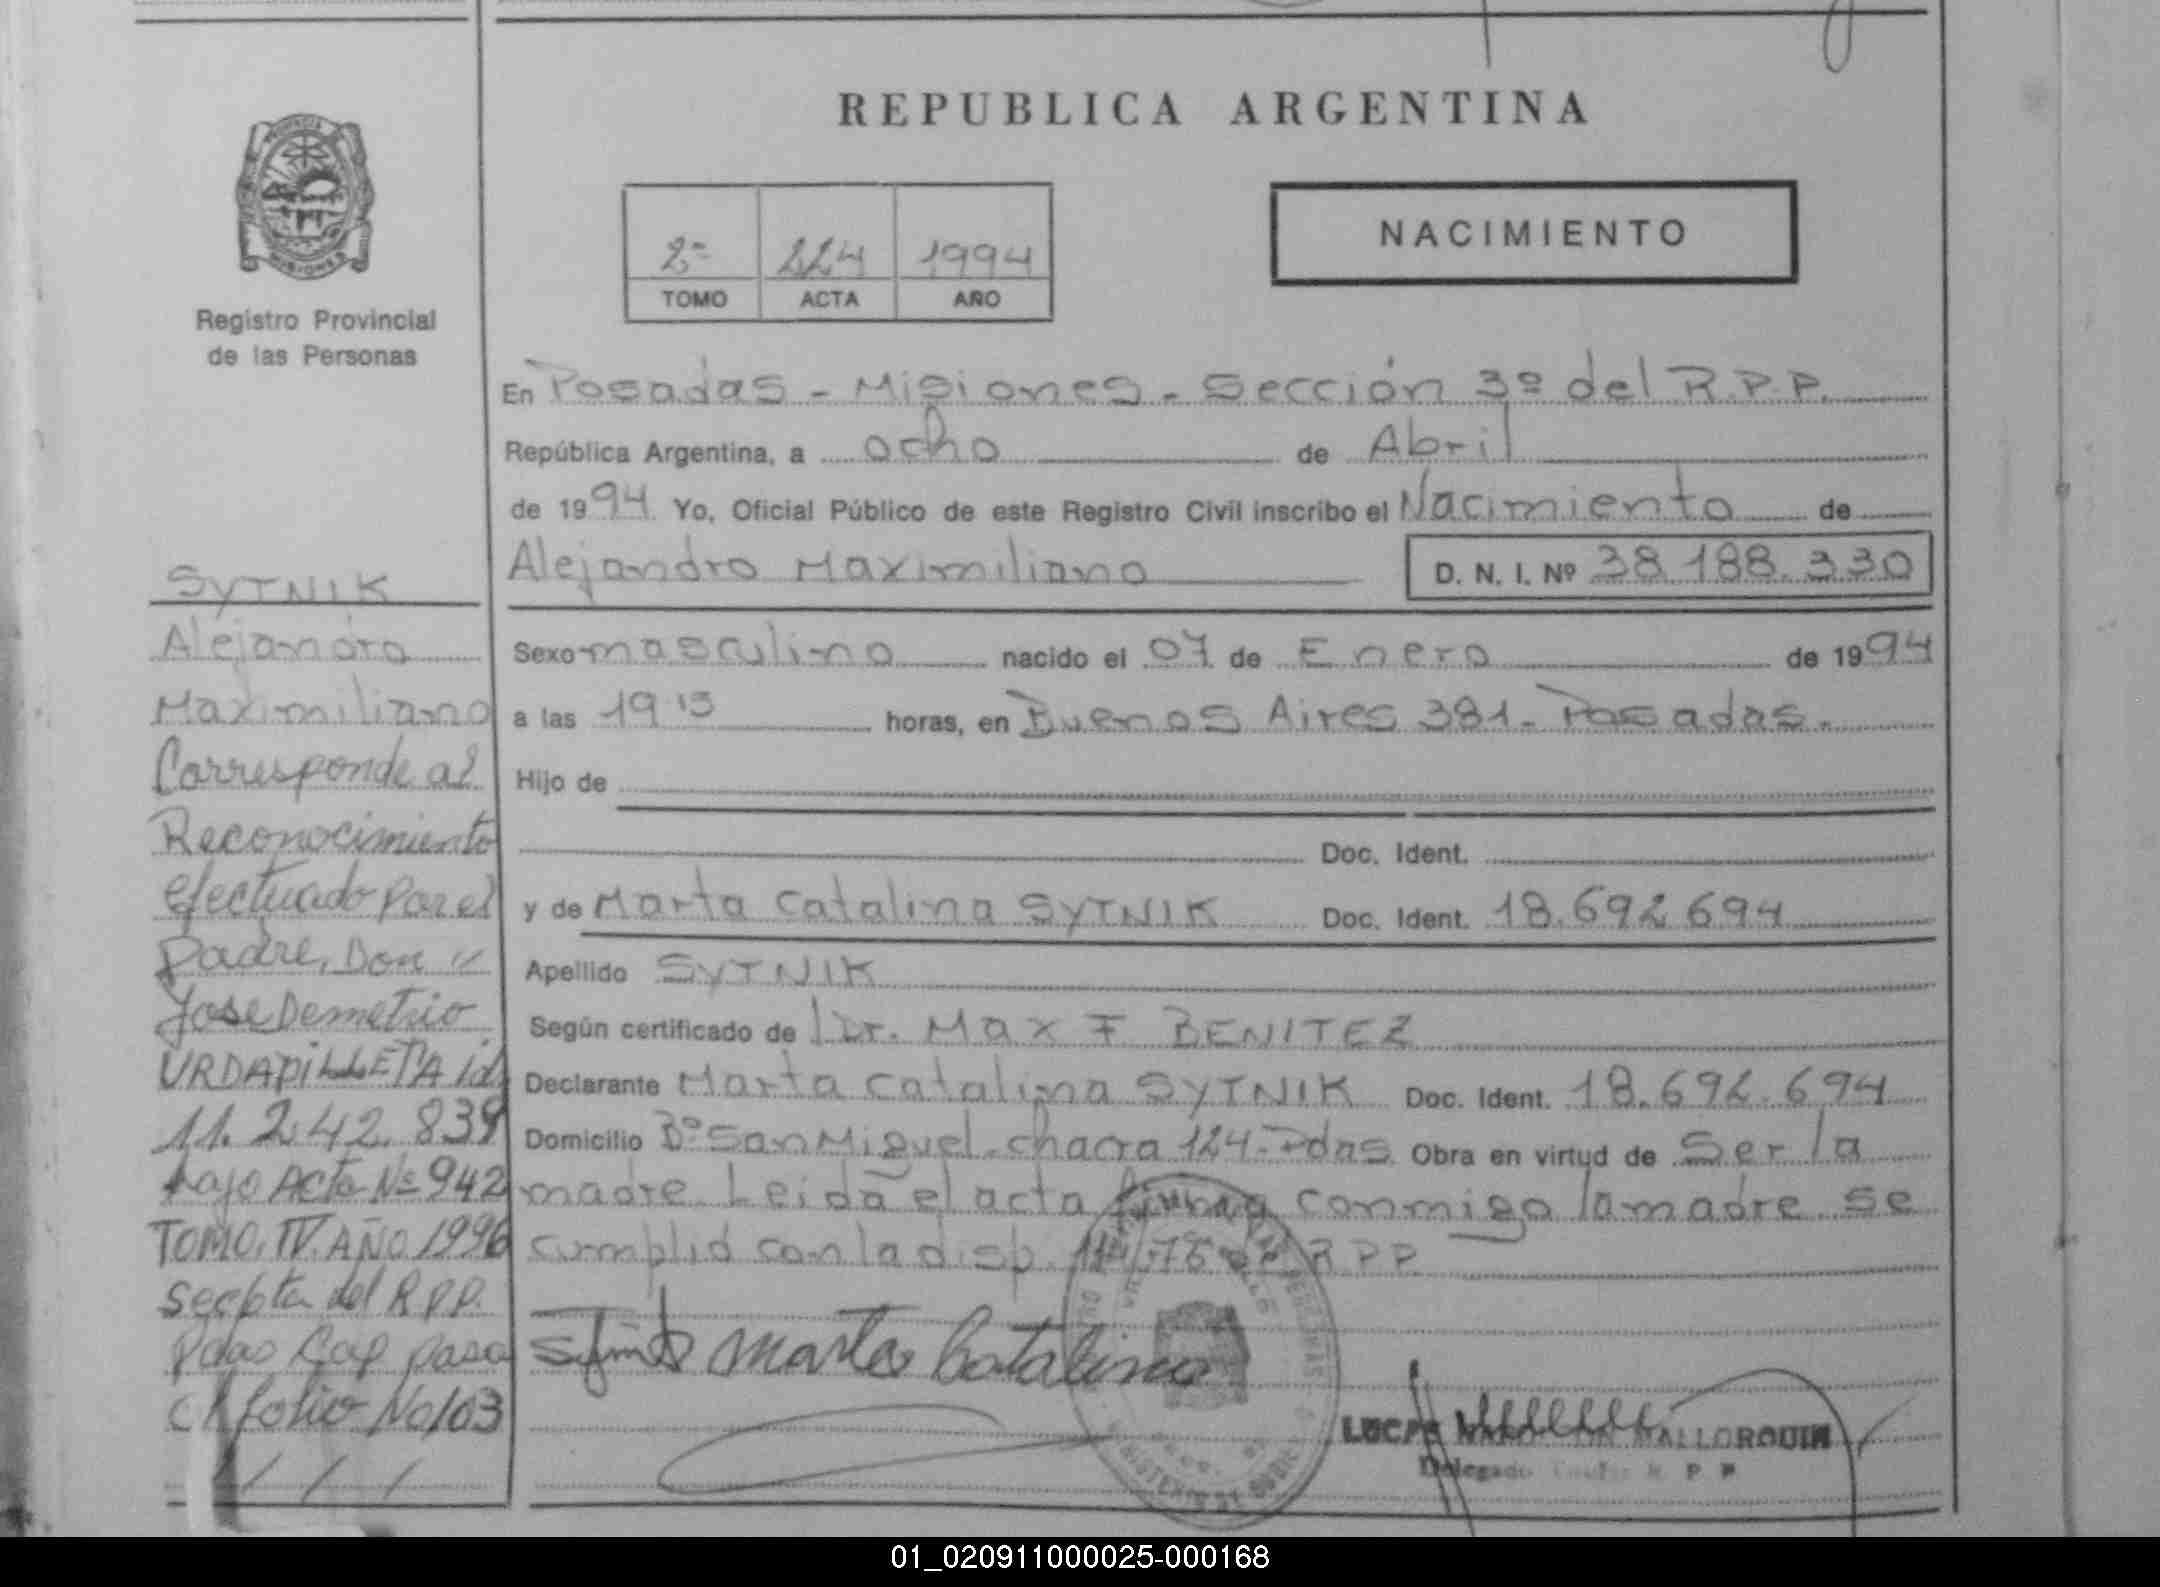 REPUBLICA ARGENTINA
PROVINCIA
MISIONES
Registro Provincial
de las Personas
2º 224 1994
TOMO ACTA AÑO
NACIMIENTO
En Posadas - Misiones - Sección 3º del R.P.P.
República Argentina, a ocho de Abril
de 1994 Yo, Oficial Público de este Registro Civil inscribo el Nacimiento de
Alejandro Maximiliano D. N. I. Nº 38.188.330
Sexo masculino nacido el 07 de Enero de 1994
a las 19 15 horas, en Buenos Aires 381 - Posadas.
Hijo de
Doc. Ident.
y de Marta Catalina SYTNIK Doc. Ident. 18.692.694
Apellido SYTNIK
Según certificado de Dr. Max F BENITEZ
Declarante Marta Catalina SYTNIK Doc. Ident. 18.692.694
Domicilio Bº San Miguel - chacra 124 - Pdas Obra en virtud de Ser la
madre. Leida el acta firma conmigo la madre. se
cumplió con la disp. 114/75 R P P
Marta Catalina
MALLORQUIN
Delegado
SYTNIK
Alejandro
Maximiliano
Corresponde al
Reconocimiento
efectuado por el
Padre, Don "
Jose Demetrio
URDAPILLETA id
11.242.839
bajo Acta Nº 942
TOMO. IV. AÑO 1996
del R.P.P.
Pdas Cap pasa
folio Nº 103
01_020911000025-000168